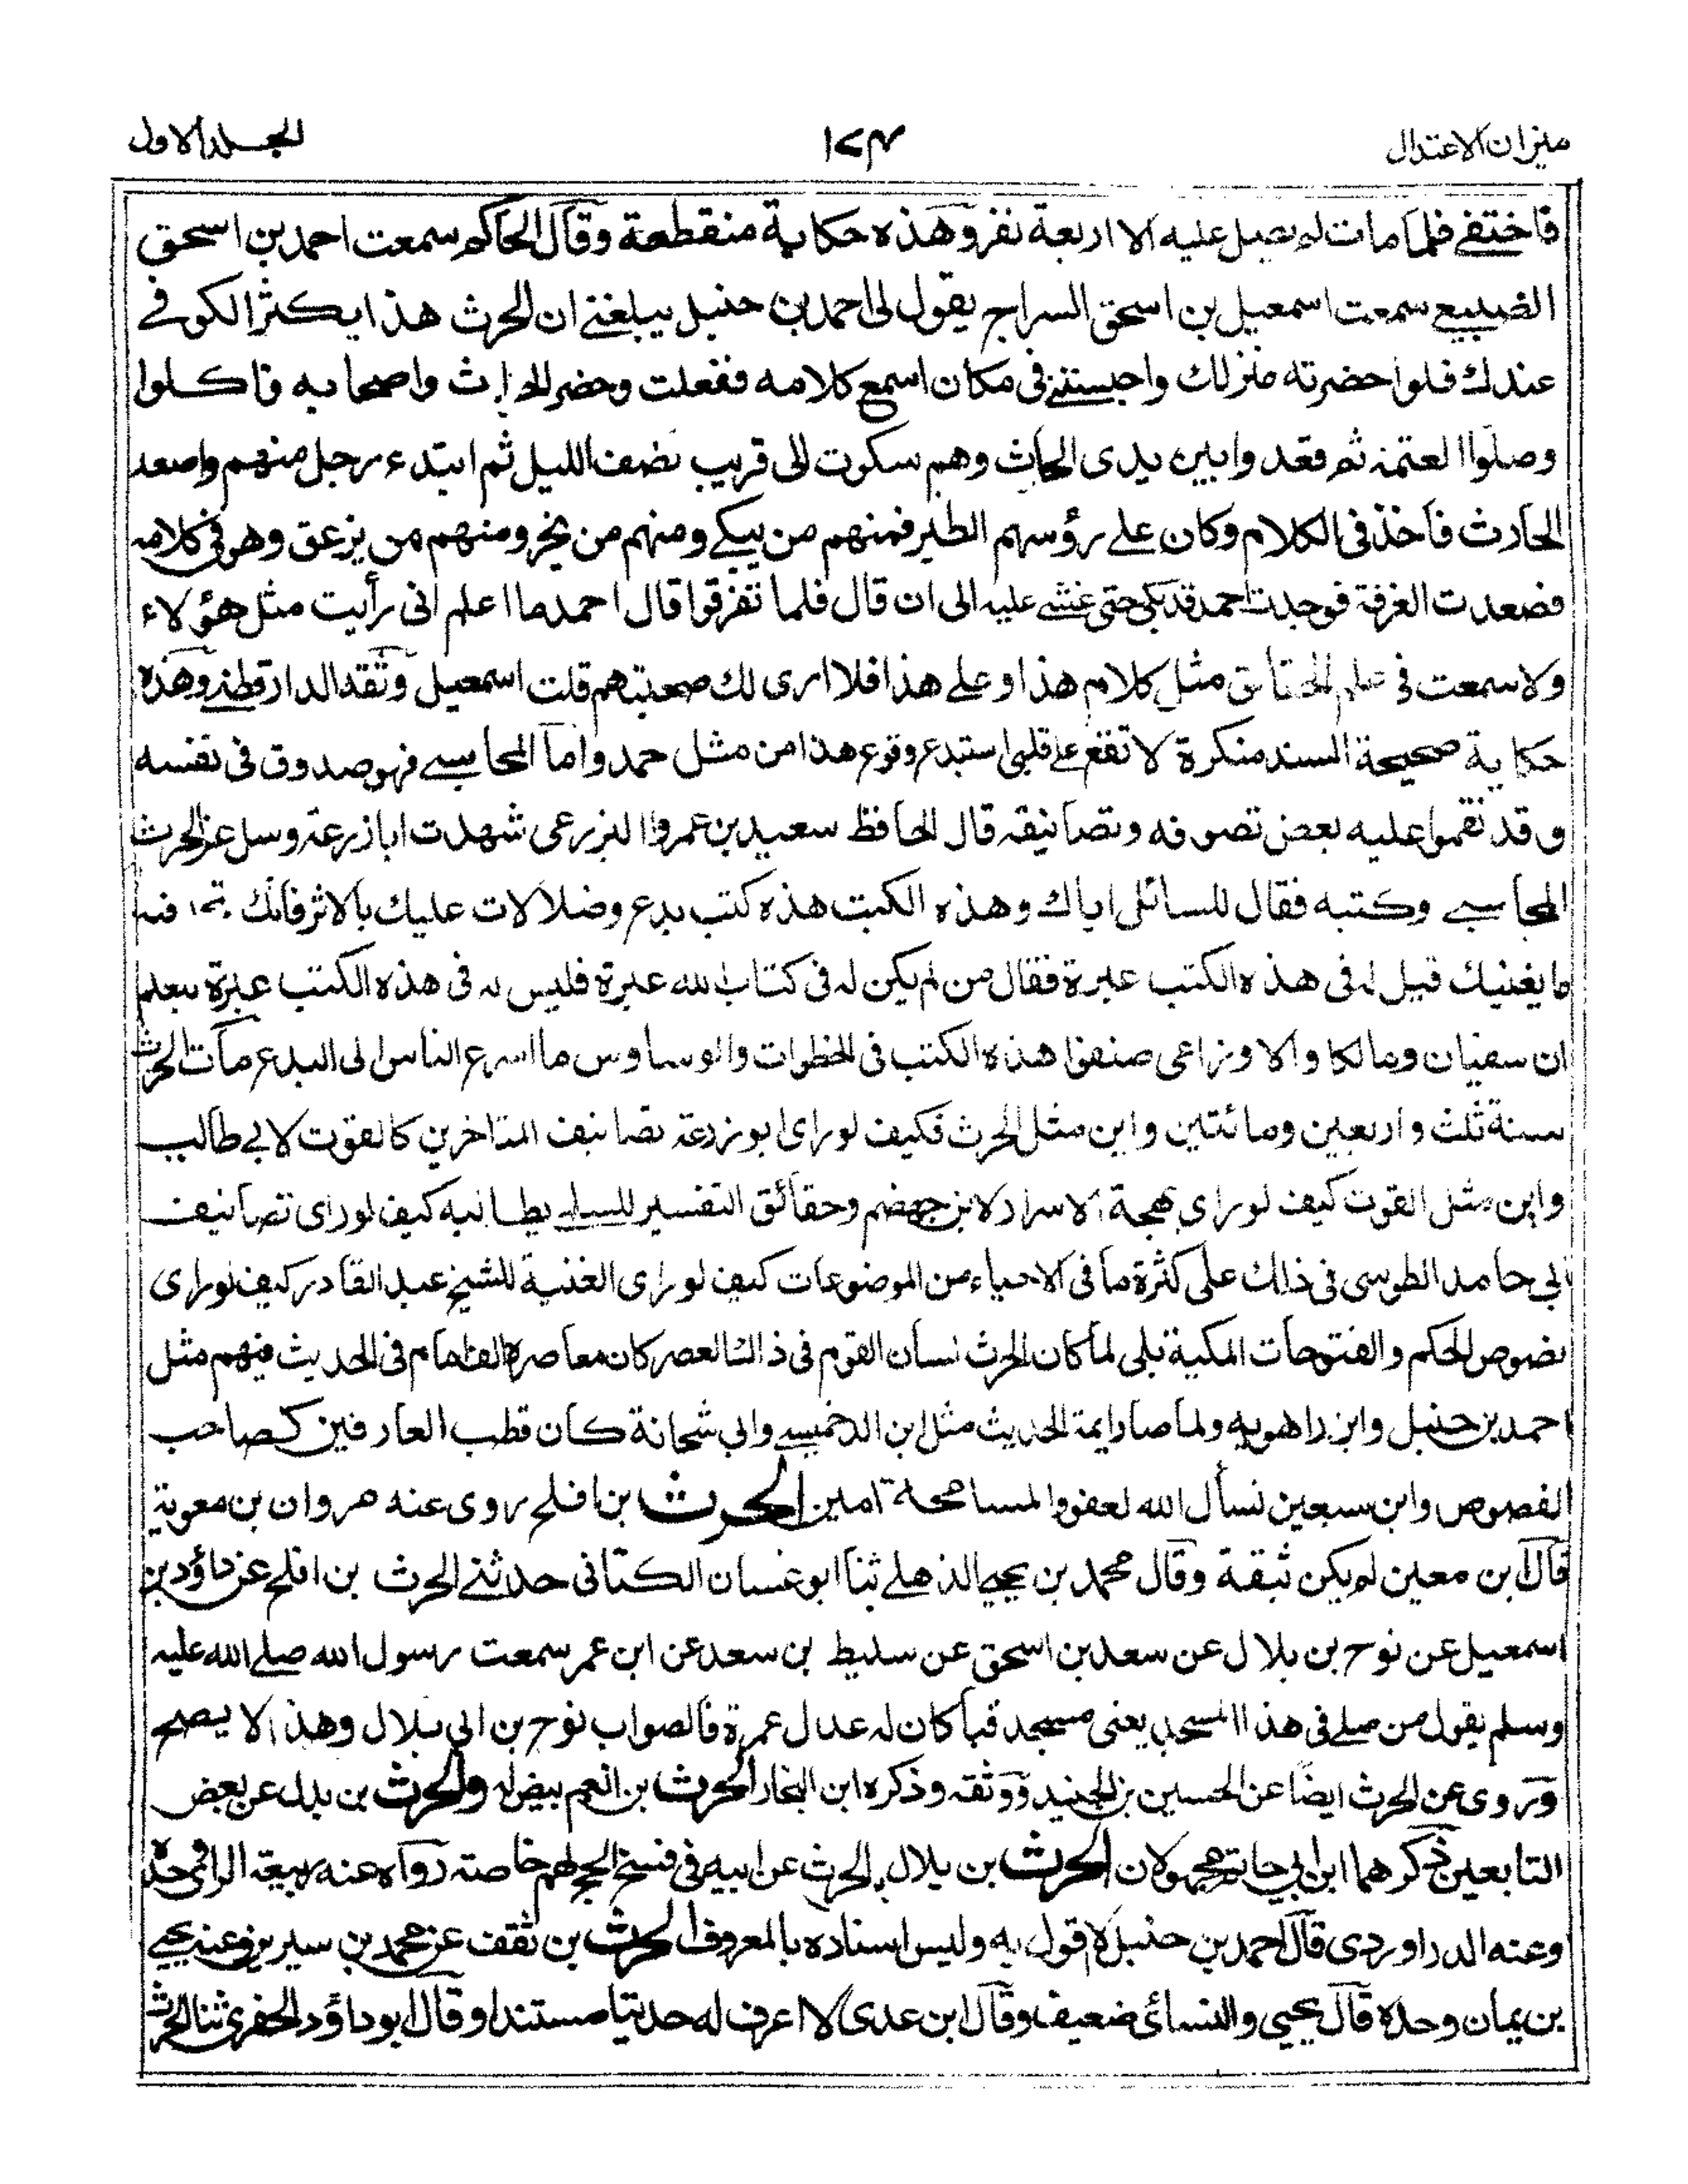 ميزان الاعتدال
١٧٣
الجلد الاول
فاختفے فلما مات لم يصل عليه الا اربعة نفر وهذه حكاية منقطعة وقال الحاكم سمعت احمد بن اسحق
الضبيعے سمعت اسمعيل بن اسحق السراج يقول لى احمد بن حنبل يبلغنے ان الحرث هذا يكثر الكون فے
عندك فلو احضرته منزلك واجلستنے فى مكان اسمع كلامه ففعلت وحضر الحارث واصحابه فاكلوا
وصلوا العتمة ثم قعدوا بين يدى الحارث وهم سكوت الى قريب نصف الليل ثم ابتدء رجل منهم واصعد
الحارث فاخذ فى الكلام وكان علے رؤسهم الطير فمنهم من يبكے ومنهم من يخر ومنهم من يزعق وهو فى كلامه
فصعدت الغرفة فوجدت احمد قد بكى حتى غشے عليه الى ان قال فلما تفرقوا قال احمد ما اعلم انى رأيت مثل هؤلاء
ولا سمعت فى علم الحقائق مثل كلام هذا وعلے هذا فلا ارى لك صحبتهم قلت اسمعيل وثقه الدارقطنے وهذه
حكاية صحيحة السند منكرة لا تقع على قلبى استبدع وقوع هذا من مثل حمد واما المحاسبے فهو صدوق فى نفسه
وقد نقموا عليه بعض تصوفه وتصانيفه قال الحافظ سعيد بن عمرو البزرعى شهدت ابا زرعة وسل عن الحرث
المحاسبے وكتبه فقال للسائل اياك وهذه الكتب هذه كتب بدع وضلالات عليك بالاثر فانك تجد فيه
ما يغنيك قيل له فى هذه الكتب عبرة فقال من لم يكن له فى كتاب الله عبرة فليس له فى هذه الكتب عبرة بعلم
ان سفيان ومالكا والاوزاعى صنفوا هذه الكتب فى الخطرات والوساوس ما اسرع الناس الى البدع مات الحرث
سنة ثلث واربعين ومائتين واين مثل الحرث فكيف لو راى ابو زرعة تصانيف المتاخرين كالقوت لابے طالب
واين مثل القوت كيف لو راى بهجة الاسرار لابن جهضم وحقائق التفسير للسلمے يطانبه كيف لو راى تصانيف
ابى حامد الطوسى فى ذلك على كثرة ما فى الاحياء من الموضوعات كيف لو راى الغنية للشيخ عبد القادر كيف لو راى
نصوص الحكم والفتوحات المكية بلى لما كان الحرث لسان القوم فى ذالك العصر كان معاصره الف امام فى الحديث فيهم مثل
احمد بن حنبل وابن راهويه ولما صار ايمة الحديث مثل ابن الدخميسے وابى شحانة كان قطب العارفين كصاحب
الفصوص وابن سبعين نسأل الله لعفو والمسامحة آمين الحرث بن افلح روى عنه مروان بن معوية
قال ابن معين لم يكن ثبقة وقال محمد بن يحيے الذهلے ثنا ابو غسان الكنانى حدثنے الحرث بن افلح عن داؤد بن
اسمعيل عن نوح بن بلال عن سعد بن اسحق عن سليط بن سعد عن ابن عمر سمعت رسول الله صلے الله عليه
وسلم يقول من صلے فى هذا المسجد يعنى مسجد قبا كان له عدل عمرة فالصواب نوح بن ابى بلال وهذا لا يصح
وروى عن الحرث ايضًا عن الحسين بن الجنيد ووثقه وذكره ابن النجار الحرث بن انعم بيض له والحرث بن بدل عن بعض
التابعين ذكرهما ابن ابى حاتم مجهولان الحرث بن بلال بن الحرث عن ابيه فى فسخ الحج لهم خاصته رواه عنه ربيعة الرائى وحده
وعنه الدراوردى قال احمد بن حنبل لا اقول به وليس اسناده بالمعروف الحرث بن ثقف عن محمد بن سيرين وعنه يحيے
بن يمان وحده قال يحيى والنسائى ضعيف وقال ابن عدى لا اعرف له حديثا مستندا وقال ابو داؤد الحفرى ثنا الحرث